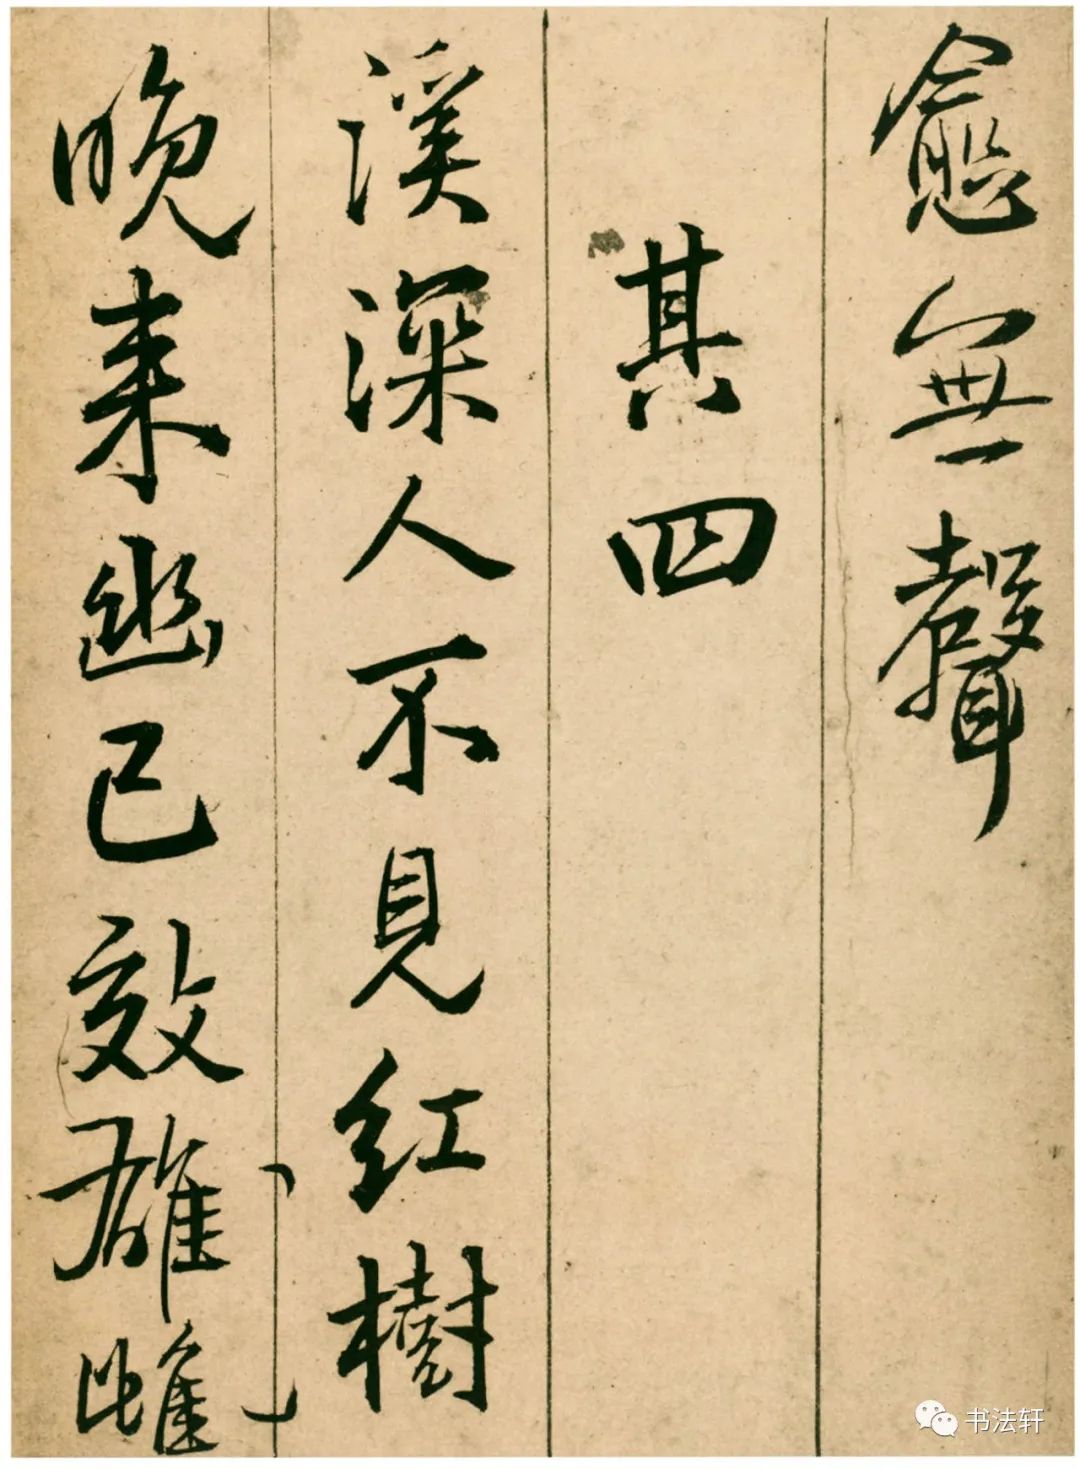 愈無聲
其四
溪深人不見紅樹
晚来幽已效雄雌
书法轩